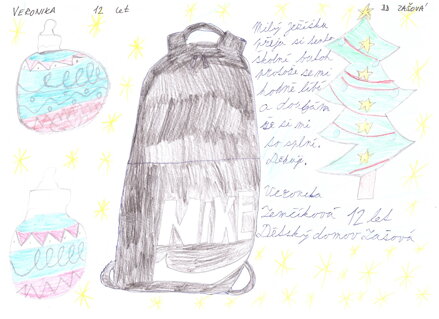 VERONIKA 12 let DD ZAŠOVÁ
Milý Ježíšku
přeju si tento
školní batoh
protože se mi
hodně líbí
a doufám
že se mi
to splní.
Děkuji.
Veronika
12 let
Dětský domov Zašová
NIKE